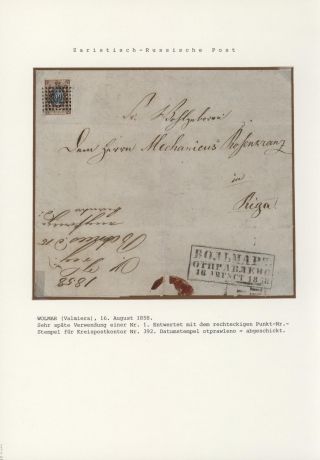 Zaristisch-Russische Post
Sr. Wohlgeboren
Dem Herrn Mechanicus Rosenkranz
in
Riga
1858
ВОЛЬМАРЪ
ОТПРАВЛЕНО
16 АВГУСТ 1858
WOLMAR (Valmiera), 16. August 1858.
Sehr späte Verwendung einer Nr. 1. Entwertet mit dem rechteckigen Punkt-Nr.-
Stempel für Kreispostkontor Nr. 392. Datumstempel otprawleno - abgeschickt.